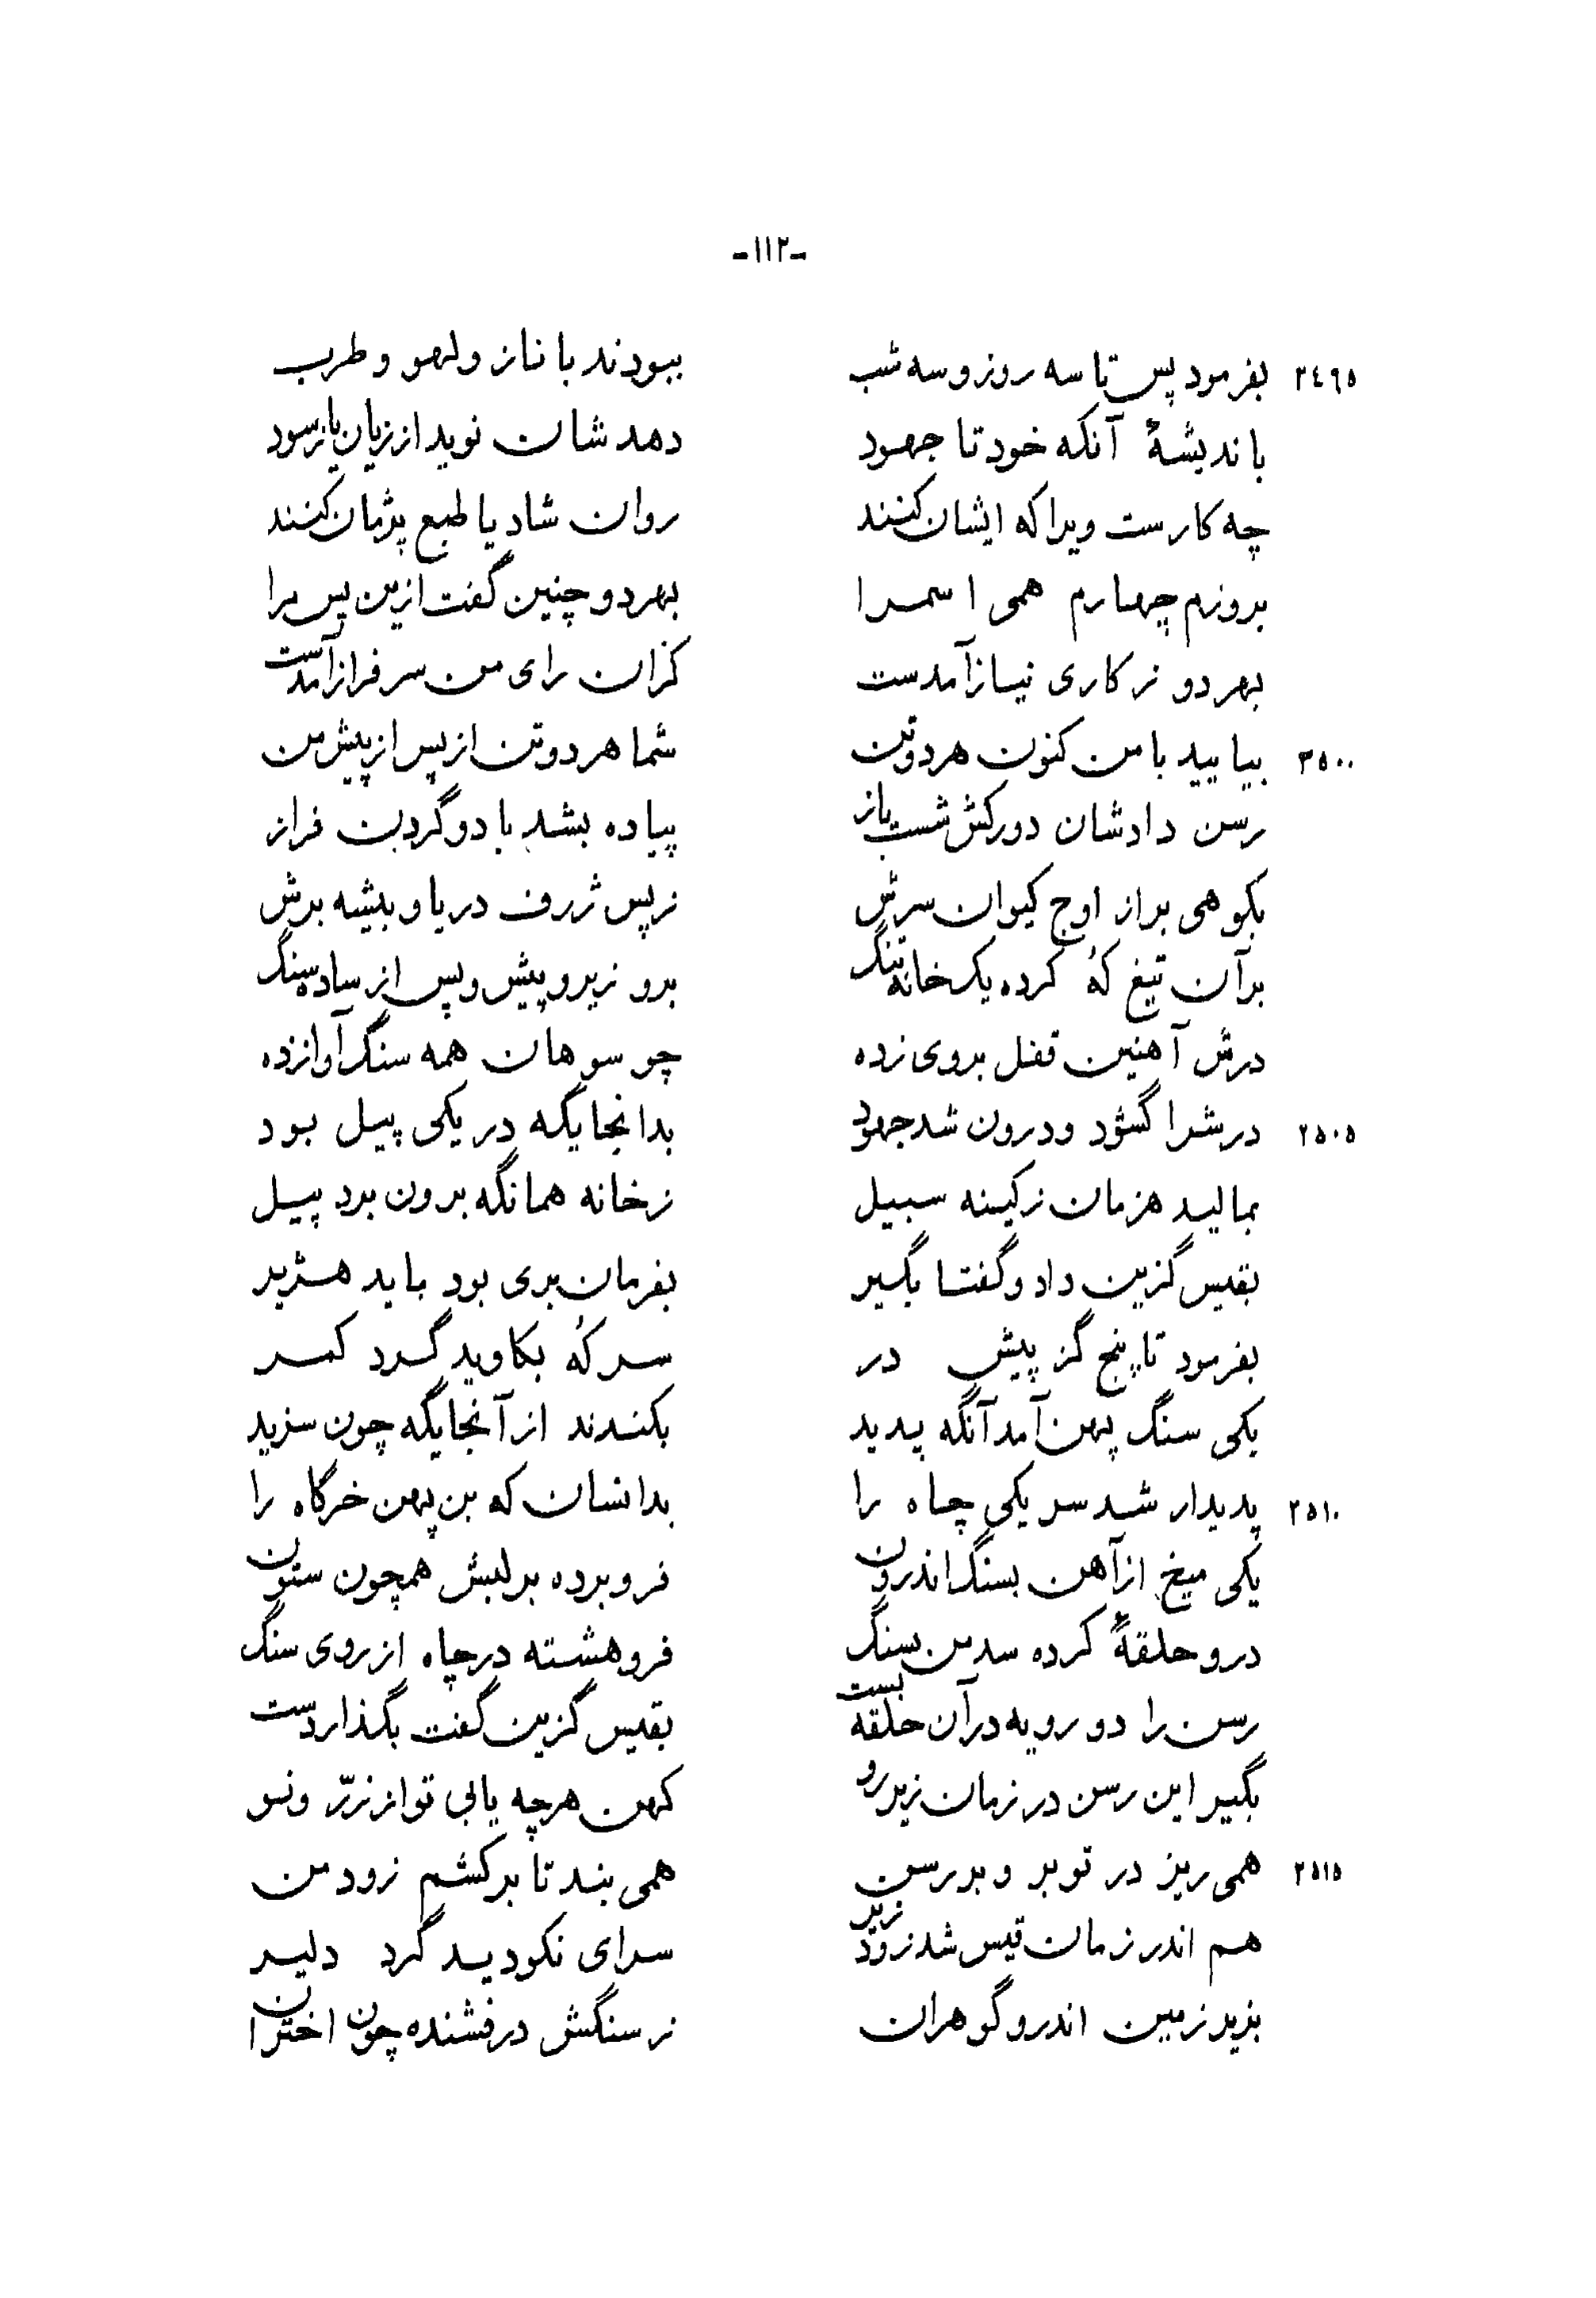 -١١٢-
٢٤٩٥ بفرمود پس تا سه روز و سه شب ببودند با ناز و لهو و طرب
باندیشهٔ آنکه خود تا جهود دهد شان نوید از زیان یا ز سود
چه کارست ویرا که ایشان کنند روان شاد یا طبع پژمان کنند
بروزم چهارم همی اسمرا بهر دو چنین گفت ازین پس مرا
بهر دو ز کاری نیاز آمدست کزان رای من سرفراز آمدست
٣٥٠٠ بیایید با من کنون هر دو تن شما هر دو تن از پس از پیش من
رسن دادشان دو رکش شست باز پیاده بشد با دو گردن فراز
بکوهی براز اوج کیوان سرش ز پس ژرف دریا و بیشه برش
بر آن تیغ کُه کرده یک خانه تنگ برو زیر و پیش و پس از ساده سنگ
درش آهنین قفل بروی زده چو سوهان همه سنگ آواززده
٢٥٠٥ درشرا گشود و درون شد جهود بدانجایگه در یکی پیل بود
بمالید هزمان ز کینه سبیل ز خانه همانگه برون برد پیل
بقیس گزین داد و گفتا بگیر بفرمان بری بود باید هژیر
بفرمود تا پنج گز پیش در سر کُه بکاوید گرد کمر
یکی سنگ پهن آمد آنگه پدید بکندند از آنجایگه چون سزید
٢٥١٠ پدیدار شد سر یکی چاه را بدانسان که بن پهن خرگاه را
یکی میخ از آهن بسنگ اندرون فرو برده بر لبش همچون ستون
درو حلقهٔ کرده سد من بسنگ فرو هشته در چاه از روی سنگ
رسن را دو رویه در آن حلقه بست بقیس گزین گفت بگذار دست
بگیر این رسن در زمان زیر رو کهن هرچه یابی تو از زرّ و نو
٢٥١٥ همی ریز در توبر و بر رسن همی بند تا بر کشم زود من
هم اندر زمان قیس شد زود زیر سرای نکو دید گرد دلیر
بدید زمین اندرو گوهران ز سنگش درفشنده چون اختران